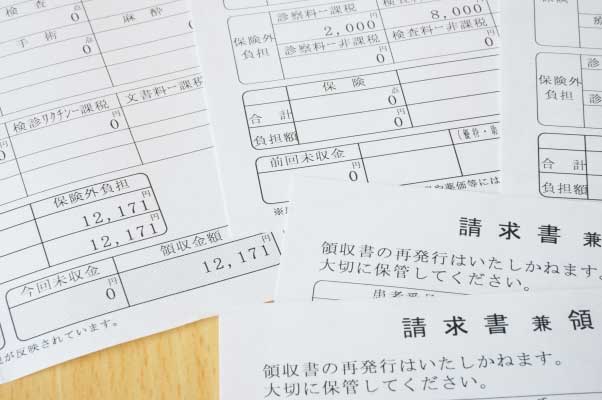 検査
麻酔
手術
0点
0点
0
検診ワクチンー課税
文書料ー課税
0円
0円
保険外負担
12,171円
12,171円
今回未収金
領収金額
0円
12,171円
が反映されています。
保険外
負担
診察料ー課税
2,000円
8,000円
診察料ー非課税
検査料ー非課税
0円
0円
保険
合計
0点
負担額
0円
前回未収金
0円
薬価等には
保険外
負担
合計
負担額
請求書兼
領収書の再発行はいたしかねます。
大切に保管してください。
患者番号
請求書兼領
領収書の再発行はいたしかねます。
大切に保管してください。